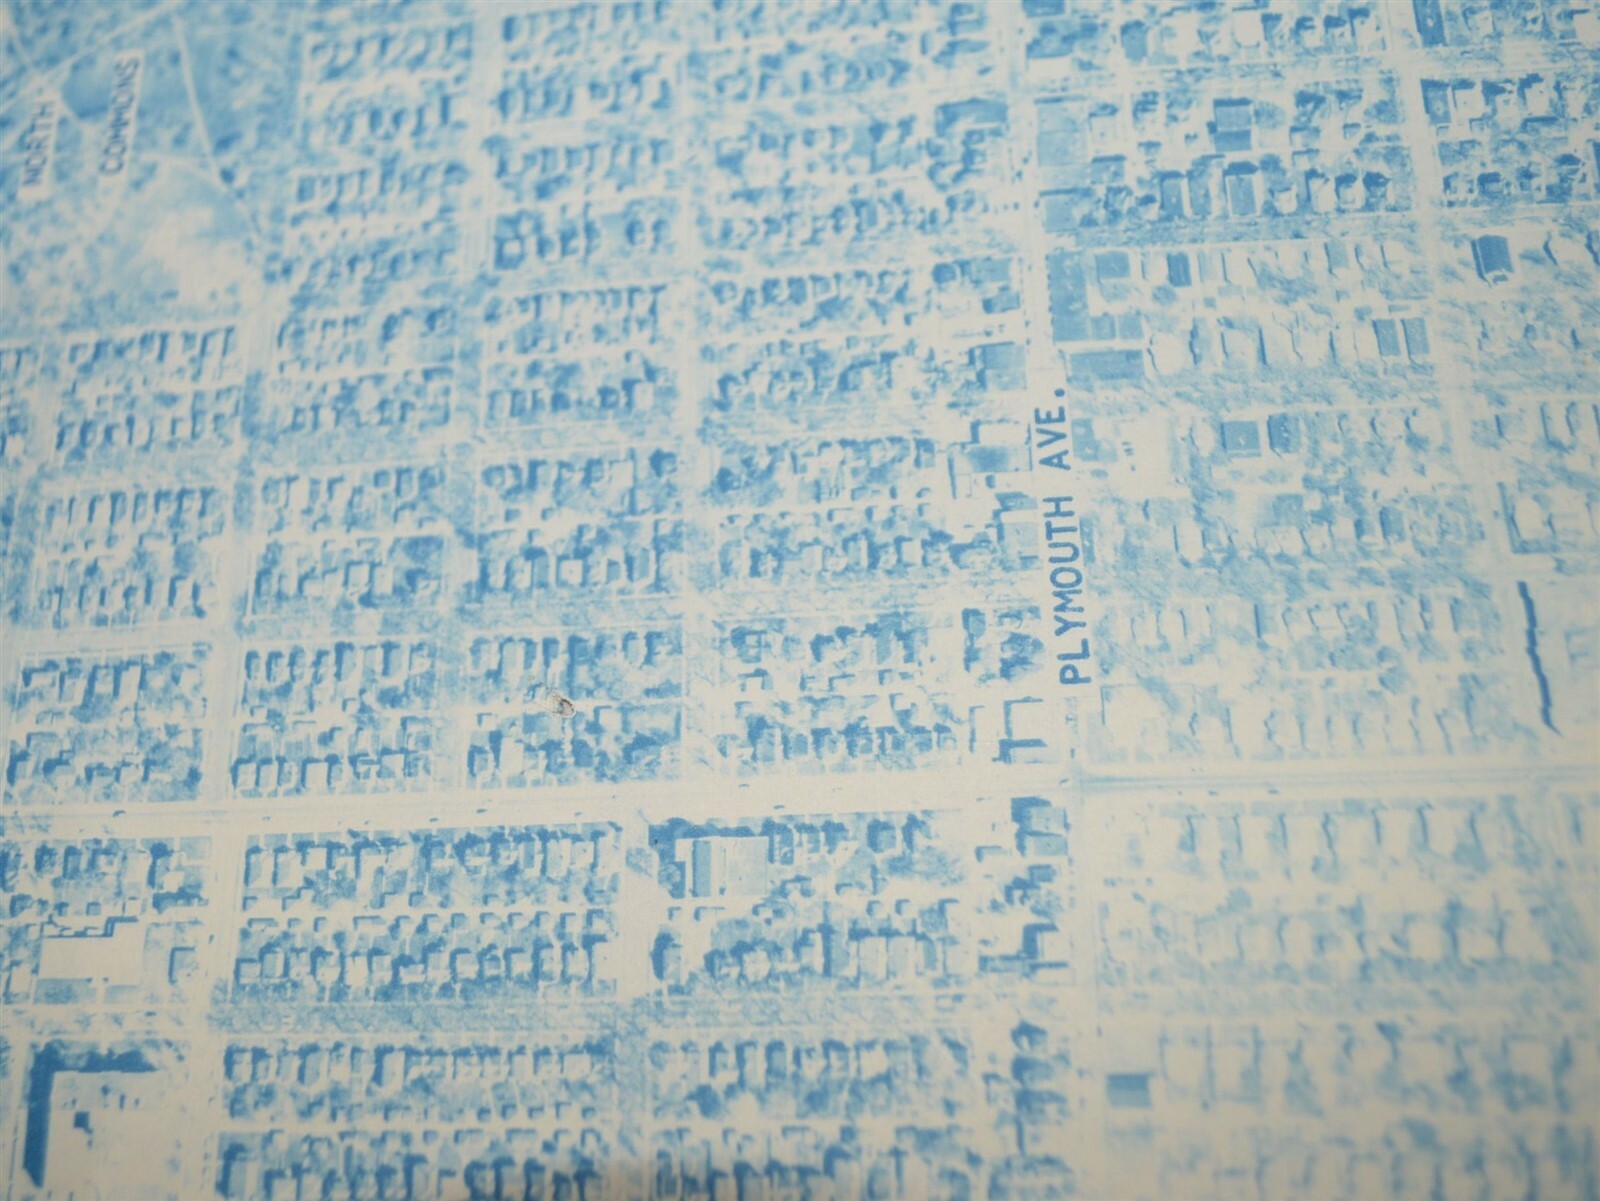 NORTH
COMMONS
PLYMOUTH AVE.